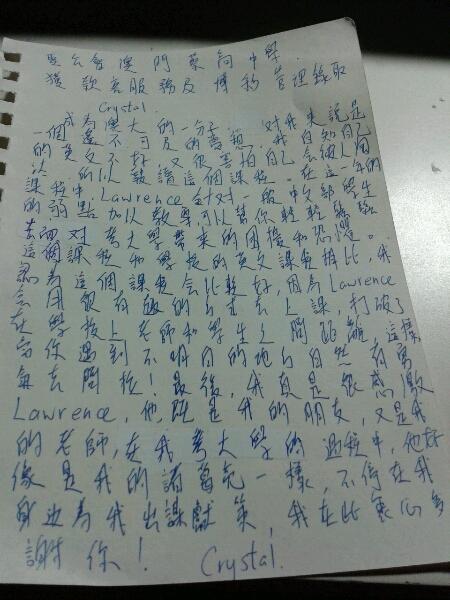 聖公會澳門蔡高中學
獲款客服務及博彩管理錄取
Crystal.
成為澳大的一分子，對我來說是
一個遙不可及的夢想，我自知自己
的英文不好，又很害怕自己會被人問
以，所以報讀這個課程。在這一年的
課程中，Lawrence針對一般中文部學生
的弱點加以教導可以幫你輕輕鬆鬆
去面對考大學帶來的困擾和恐懼。
這個課程和學校的英文課程相比，我
認為這個課程會比較好，因為Lawrence
會用很有趣的方式去上課，打破了
在學校上老師和學生之間距離，這樣
當你遇到不明白的地方自然有勇
氣去問投！最後，我真是很感激
Lawrence，他既是我的朋友，又是我
的老師，在我考大學的過程中，他好
像是我的諸葛亮一樣，不停在我
身边為我出謀獻策，我在此衷心多
謝你！ Crystal.